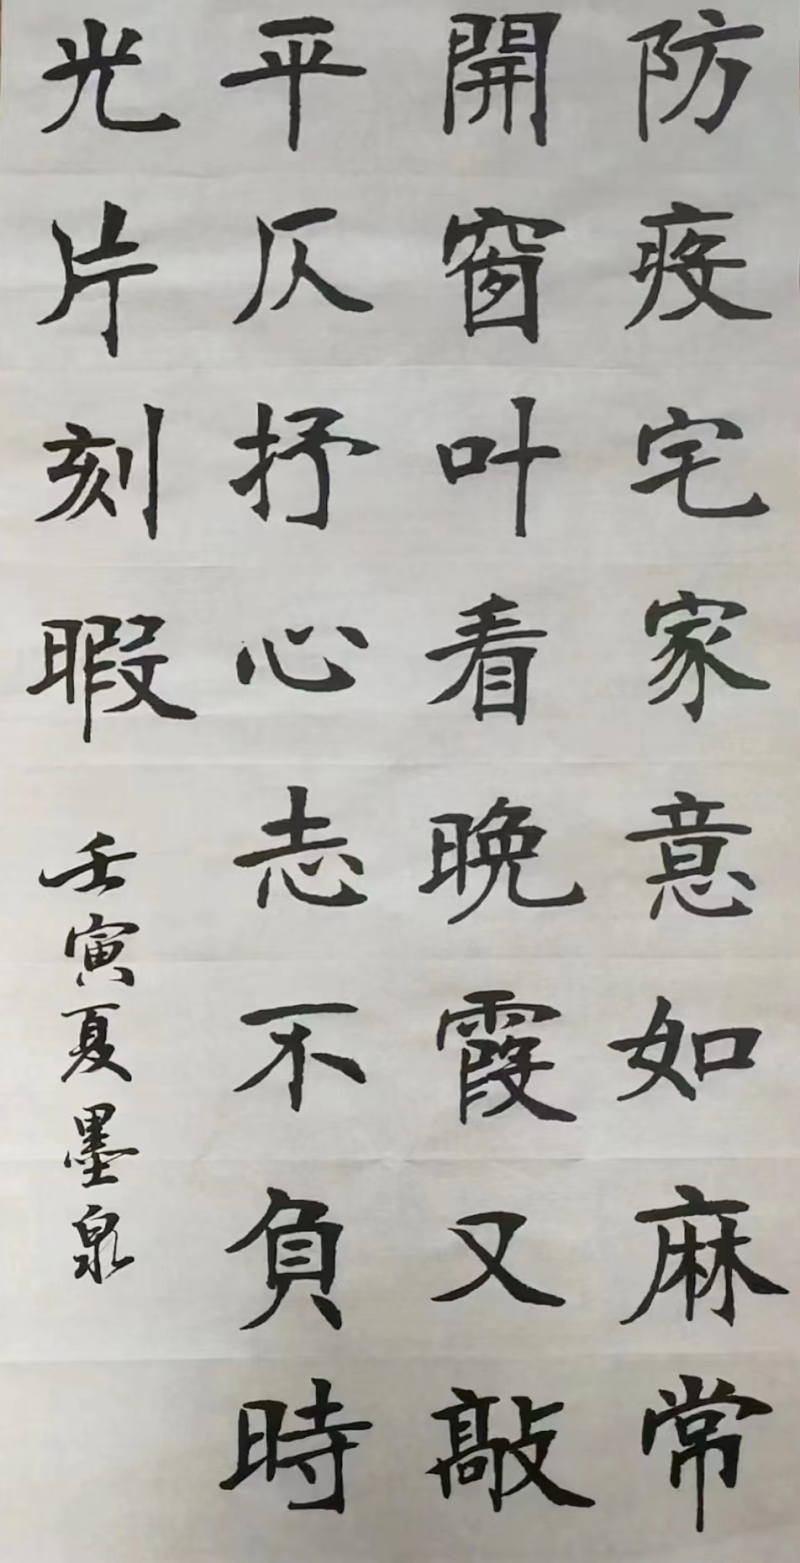 防疫宅家意如麻常
開窗叶看晚霞又敲
平仄抒心志不負時
光片刻暇
壬寅夏墨泉